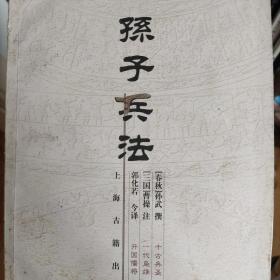 孫子兵法
[春秋]孙武 撰
[三国]曹操 注
郭化若 今译
千古兵圣
一代枭雄
开国儒将
上海古籍出